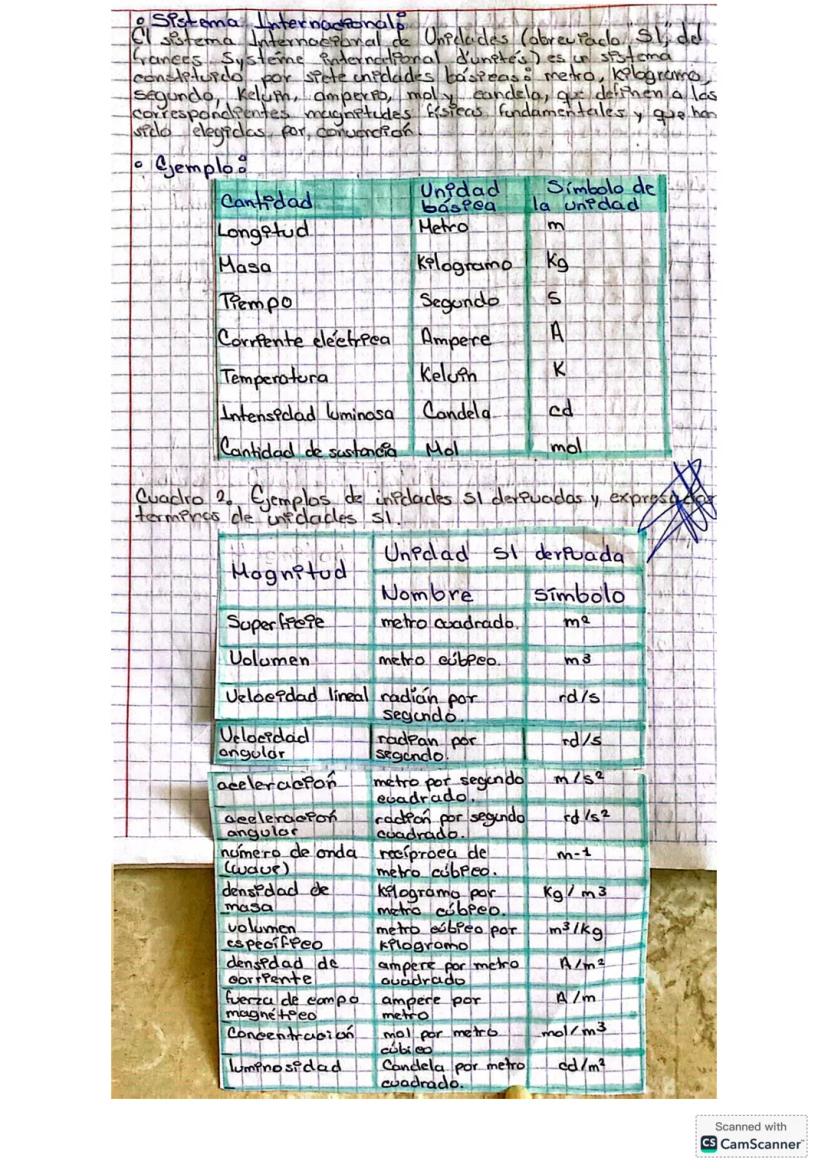 • Sistema Internacional:
El sistema Internacional de Unidades (abreviado "SI", del
frances Système international d'unités) es un sistema
constituido por siete unidades básicas: metro, Kilogramo,
segundo, Kelvin, amperio, mol y candela, que definen a las
correspondientes magnitudes físicas fundamentales y que han
sido elegidas por convención.
• Ejemplo:
Cantidad Unidad básica Símbolo de la unidad
Longitud Metro m
Masa Kilogramo Kg
Tiempo Segundo s
Corriente eléctrica Ampere A
Temperatura Kelvin K
Intensidad luminosa Candela cd
Cantidad de sustancia Mol mol
Cuadro 2. Ejemplos de unidades SI derivadas y expresadas
terminos de unidades SI.
Magnitud Unidad SI derivada
Nombre símbolo
Superficie metro cuadrado. m²
Volumen metro cúbico. m³
Velocidad lineal radián por segundo. rd/s
Velocidad angular radian por segundo. rd/s
aceleración metro por segundo cuadrado. m/s²
aceleración angular radión por segundo cuadrado. rd/s²
número de onda (wave) recíproca de metro cúbico. m-1
densidad de masa kilogramo por metro cúbico. Kg/m³
volumen específico metro cúbico por kilogramo m³/Kg
densidad de corriente ampere por metro cuadrado A/m²
fuerza de campo magnético ampere por metro A/m
Concentración mol por metro cúbico mol/m³
luminosidad Candela por metro cuadrado. cd/m²
Scanned with
CS CamScanner